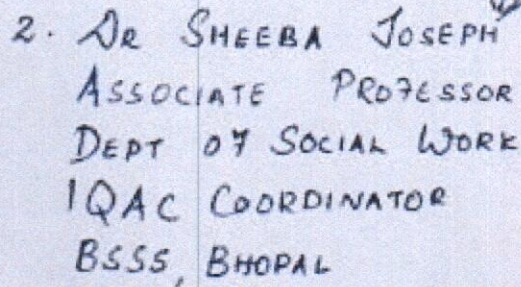 2. DR SHEEBA JOSEPH
ASSOCIATE PROFESSOR
DEPT OF SOCIAL WORK
IQAC COORDINATOR
BSSS, BHOPAL